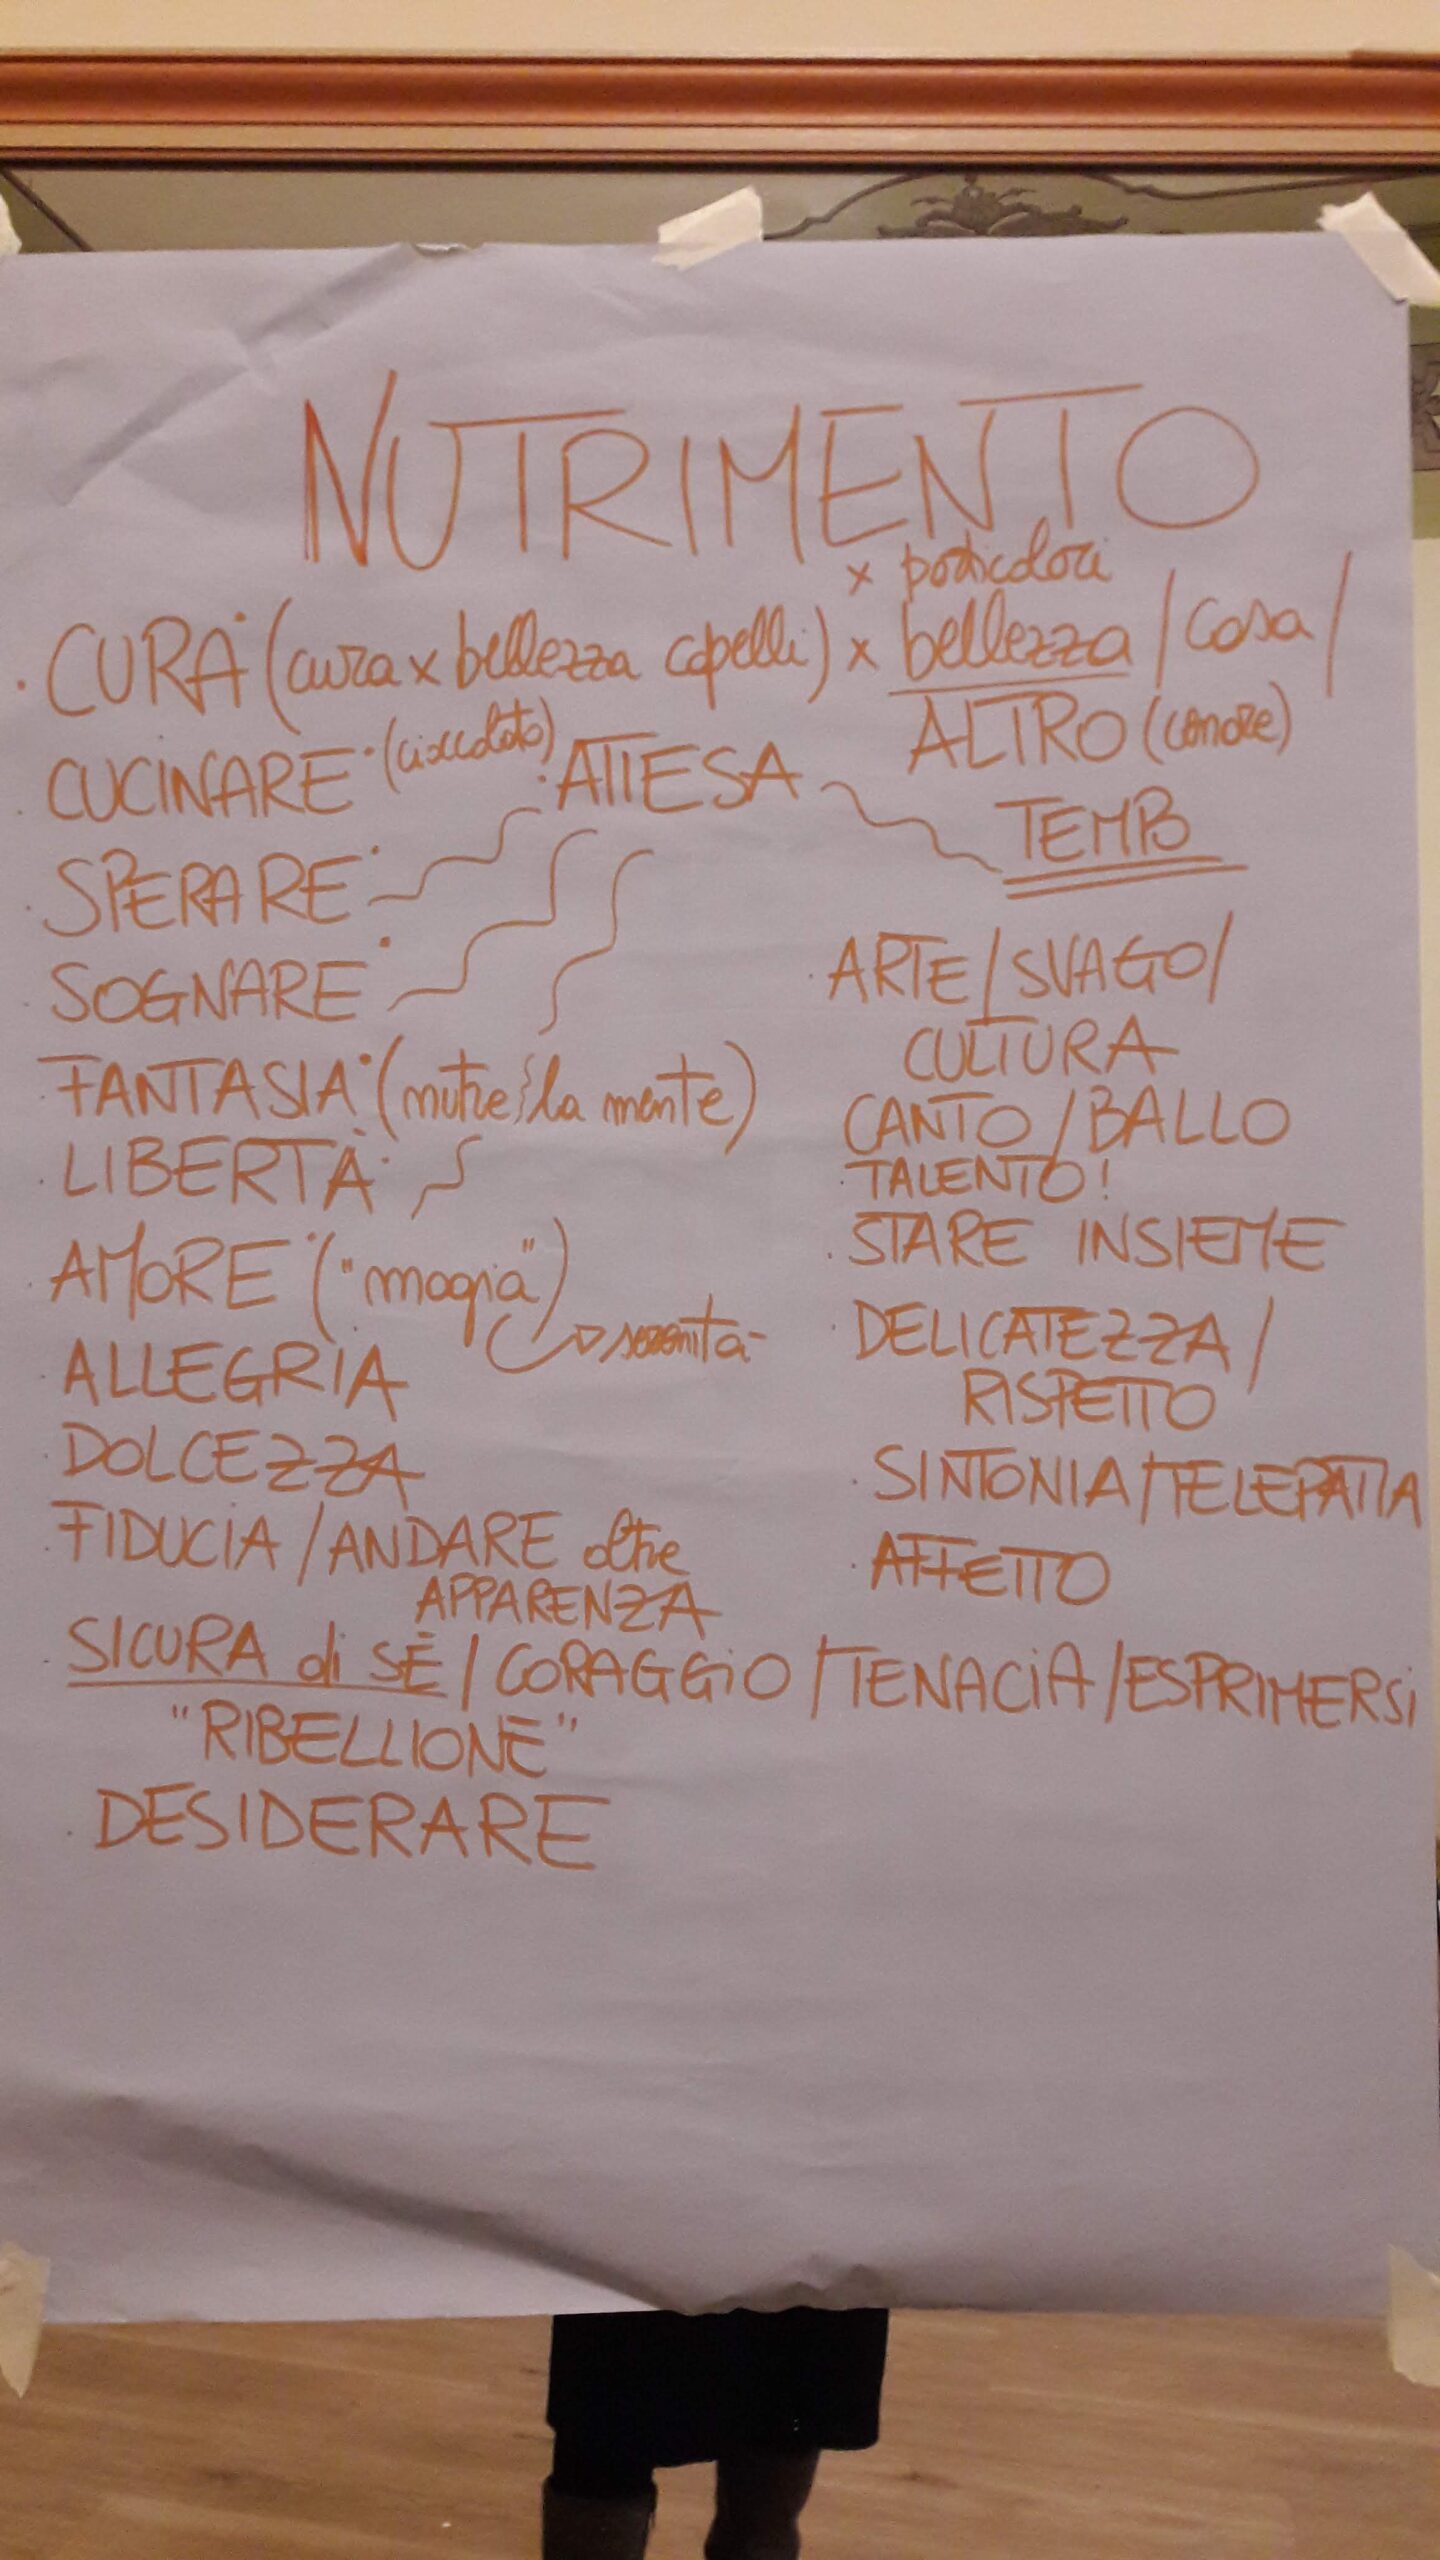 NUTRIMENTO
x particolari
• CURA (cura x bellezza capelli) x bellezza / casa /
ALTRO (amore)
• CUCINARE (cioccolato)
• ATTESA
TEMPO
• SPERARE
• SOGNARE
• FANTASIA (nutre la mente)
• LIBERTÀ
• AMORE ("magia")
serenità
ALLEGRIA
DOLCEZZA
FIDUCIA / ANDARE oltre
APPARENZA
• ARTE / SVAGO /
CULTURA
CANTO / BALLO
• TALENTO!
• STARE INSIEME
• DELICATEZZA /
RISPETTO
• SINTONIA / TELEPATIA
• AFFETTO
SICURA di SÉ / CORAGGIO / TENACIA / ESPRIMERSI
"RIBELLIONE"
• DESIDERARE